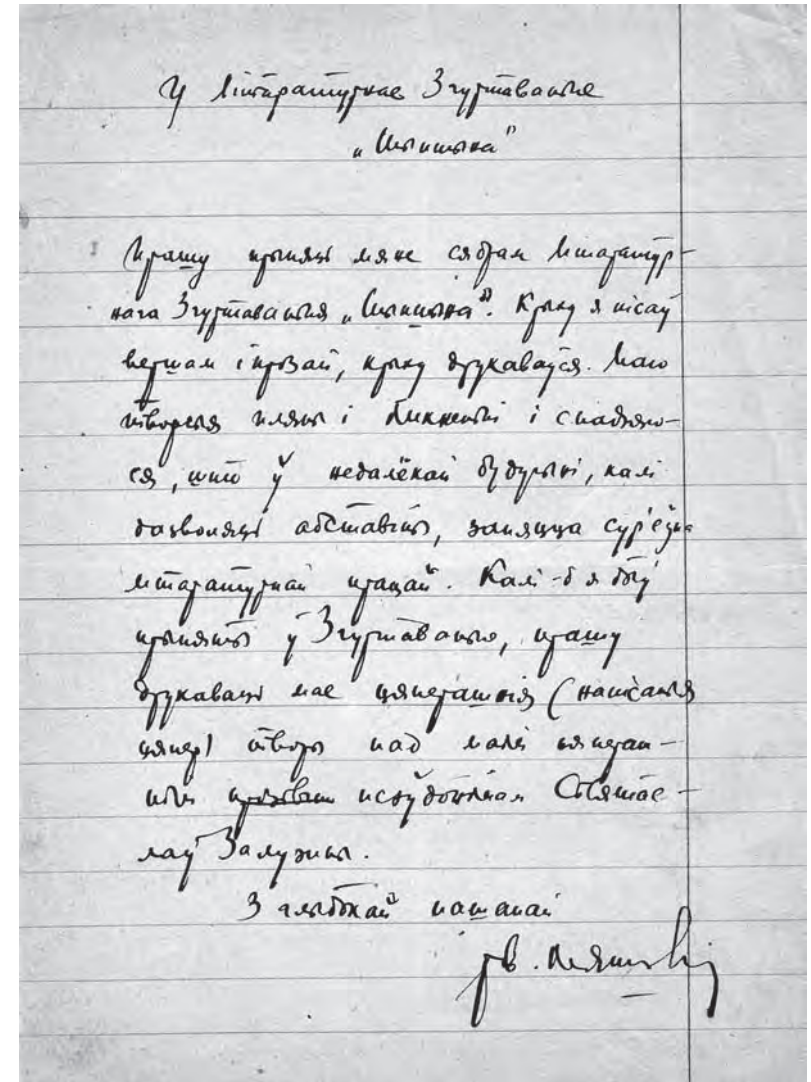 У Літаратурнае Згуртаваньне
„Шыпшына"
Прашу прыняць мяне сябрам Літаратур-
нага Згуртаваньня „Шыпшына". Крыху я пісаў
вершам і прозай, крыху друкаваўся. Маю
творчыя пляны і
ся, што ў недалёкай будучыні, калі
дазволяць абставіны, заняцца сур'ёзна
літаратурнай працай. Калі-б я быў
прыняты ў Згуртаваньне, прашу
друкаваць мае цяперашнія (напісаныя
цяпер) творы пад маім цяпераш-
нім псэўдонімам Сьвятас-
лаў Залужны.
З глыбокай пашанай